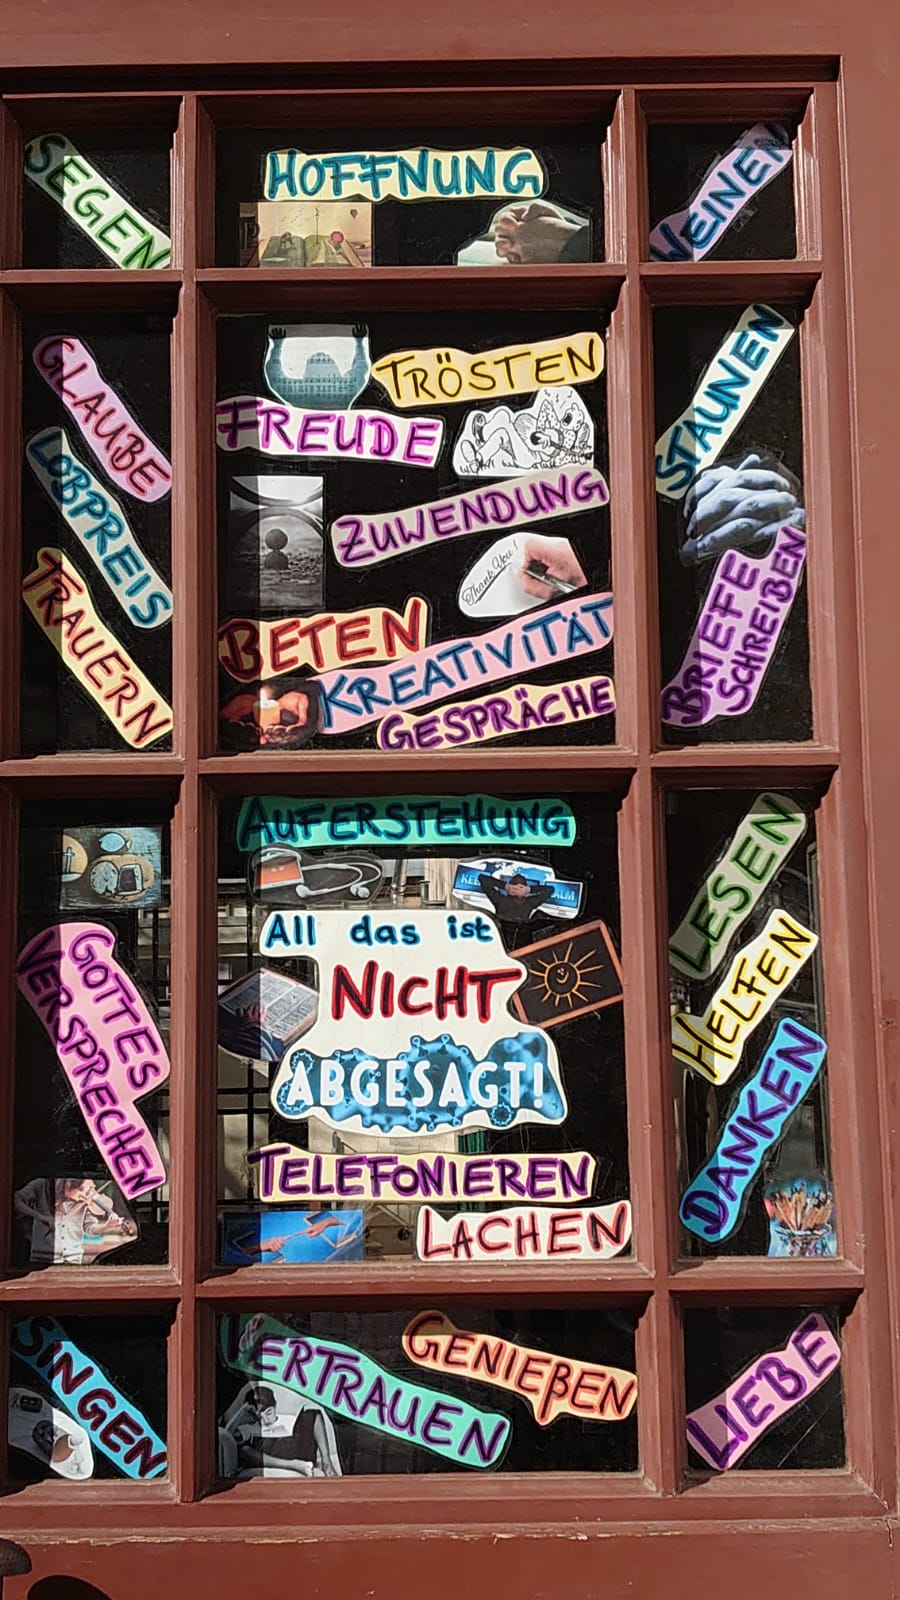 SEGEN
HOFFNUNG
WEINEN
GLAUBE
LOBPREIS
TRAUERN
TRÖSTEN
FREUDE
ZUWENDUNG
Thank You!
BETEN
KREATIVITÄT
GESPRÄCHE
STAUNEN
BRIEFE
SCHREIBEN
GOTTES
VERSPRECHEN
AUFERSTEHUNG
All das ist
NICHT
ABGESAGT!
TELEFONIEREN
LACHEN
LESEN
HELFEN
DANKEN
SINGEN
VERTRAUEN
GENIEßEN
LIEBE